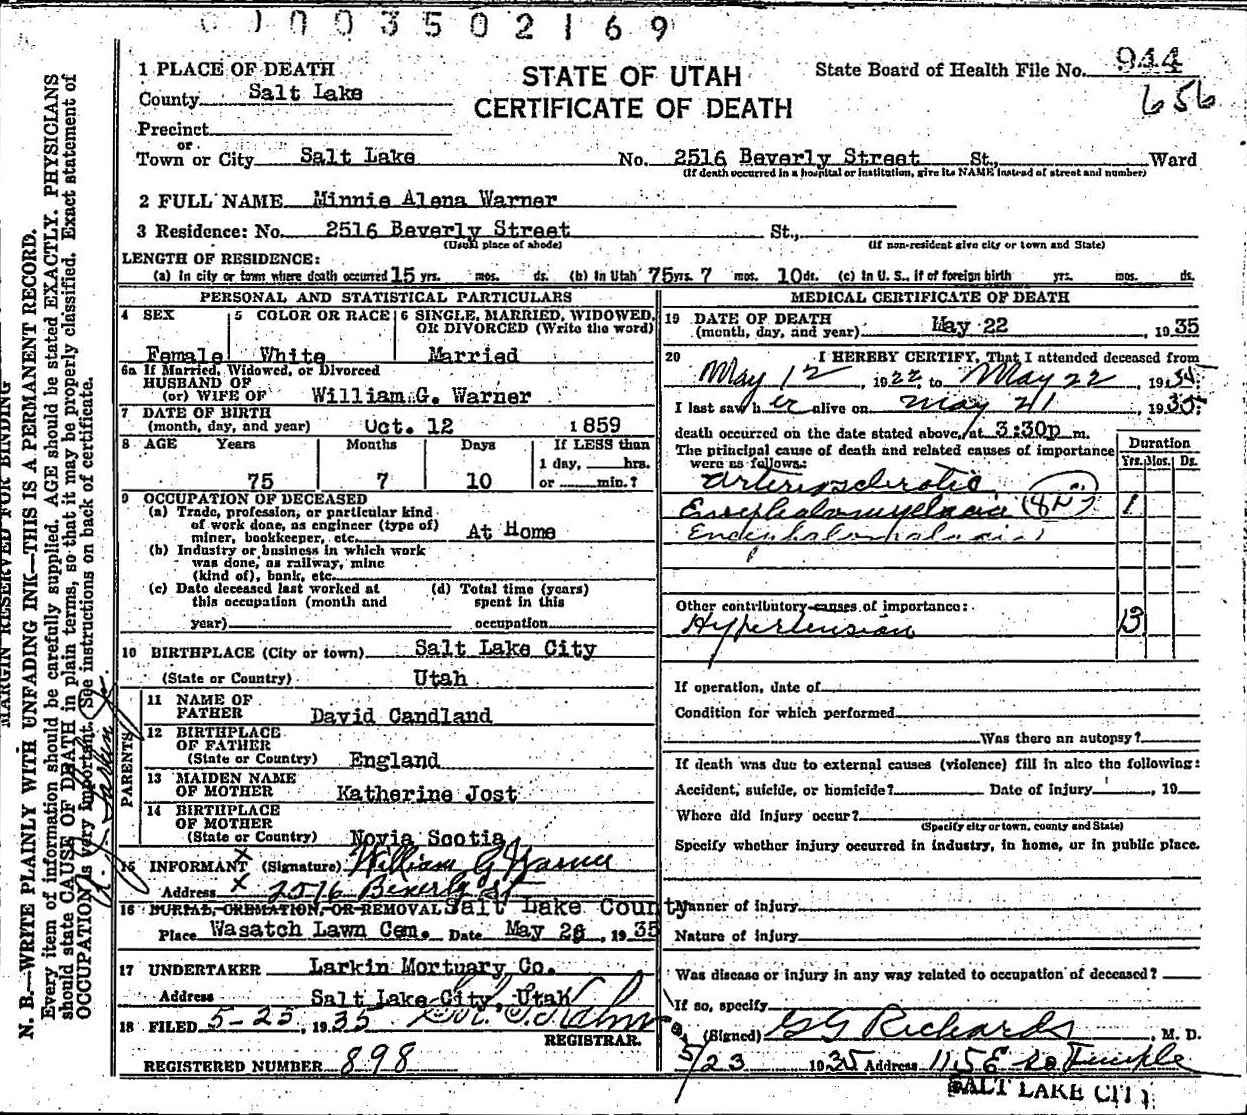 003502169
1 PLACE OF DEATH
STATE OF UTAH
CERTIFICATE OF DEATH
State Board of Health File No. 944
656
County Salt Lake
Precinct
or
Town or City Salt Lake No. 2516 Beverly Street St., Ward
(If death occurred in a hospital or institution, give its NAME instead of street and number)
2 FULL NAME Minnie Alena Warner
3 Residence: No. 2516 Beverly Street St.,
(Usual place of abode) (If non-resident give city or town and State)
LENGTH OF RESIDENCE:
(a) In city or town where death occurred 15 yrs. mos. ds. (b) In Utah 75 yrs. 7 mos. 10 ds. (c) In U. S., if of foreign birth yrs. mos. ds.
PERSONAL AND STATISTICAL PARTICULARS
4 SEX 5 COLOR OR RACE 6 SINGLE, MARRIED, WIDOWED, OR DIVORCED (Write the word)
Female White Married
6a If Married, Widowed, or Divorced
HUSBAND OF
(or) WIFE OF William G. Warner
7 DATE OF BIRTH
(month, day, and year) Oct. 12 1859
8 AGE Years Months Days If LESS than
1 day, hrs.
75 7 10 or min.?
9 OCCUPATION OF DECEASED
(a) Trade, profession, or particular kind
of work done, as engineer (type of)
miner, bookkeeper, etc. At Home
(b) Industry or business in which work
was done, as railway, mine
(kind of), bank, etc.
(c) Date deceased last worked at
this occupation (month and
year)
(d) Total time (years)
spent in this
occupation
10 BIRTHPLACE (City or town) Salt Lake City
(State or Country) Utah
PARENTS
11 NAME OF
FATHER David Candland
12 BIRTHPLACE
OF FATHER
(State or Country) England
13 MAIDEN NAME
OF MOTHER Katherine Jost
14 BIRTHPLACE
OF MOTHER
(State or Country) Novia Scotia
15 INFORMANT (Signature) William G Warner
Address 2516 Beverly St
16 BURIAL, CREMATION, OR REMOVAL Salt Lake County
Place Wasatch Lawn Cem. Date May 26, 1935
17 UNDERTAKER Larkin Mortuary Co.
Address Salt Lake City, Utah
18 FILED 5-25, 1935
REGISTRAR.
REGISTERED NUMBER 898
MEDICAL CERTIFICATE OF DEATH
19 DATE OF DEATH
(month, day, and year) May 22 1935
20 I HEREBY CERTIFY, That I attended deceased from
May 12, 1922, to May 22, 1935.
I last saw her alive on May 21 1935.
death occurred on the date stated above, at 3:30p m.
The principal cause of death and related causes of importance
were as follows:
Duration
Yrs. Mos. Ds.
Arteriosclerotic
Encephalomyelacia (82) 1
Other contributory causes of importance:
Hypertension 13
If operation, date of
Condition for which performed
Was there an autopsy?
If death was due to external causes (violence) fill in also the following:
Accident, suicide, or homicide? Date of injury , 19
Where did injury occur?
(Specify city or town, county and State)
Specify whether injury occurred in industry, in home, or in public place.
Manner of injury
Nature of injury
Was disease or injury in any way related to occupation of deceased?
If so, specify
(Signed) G G Richards, M. D.
5/23 1935 Address 115 E So Temple
SALT LAKE CITY
MARGIN RESERVED FOR BINDING
N. B.—WRITE PLAINLY WITH UNFADING INK—THIS IS A PERMANENT RECORD.
Every item of information should be carefully supplied. AGE should be stated EXACTLY. PHYSICIANS
should state CAUSE OF DEATH in plain terms, so that it may be properly classified. Exact statement of
OCCUPATION is very important. (See instructions on back of certificate.